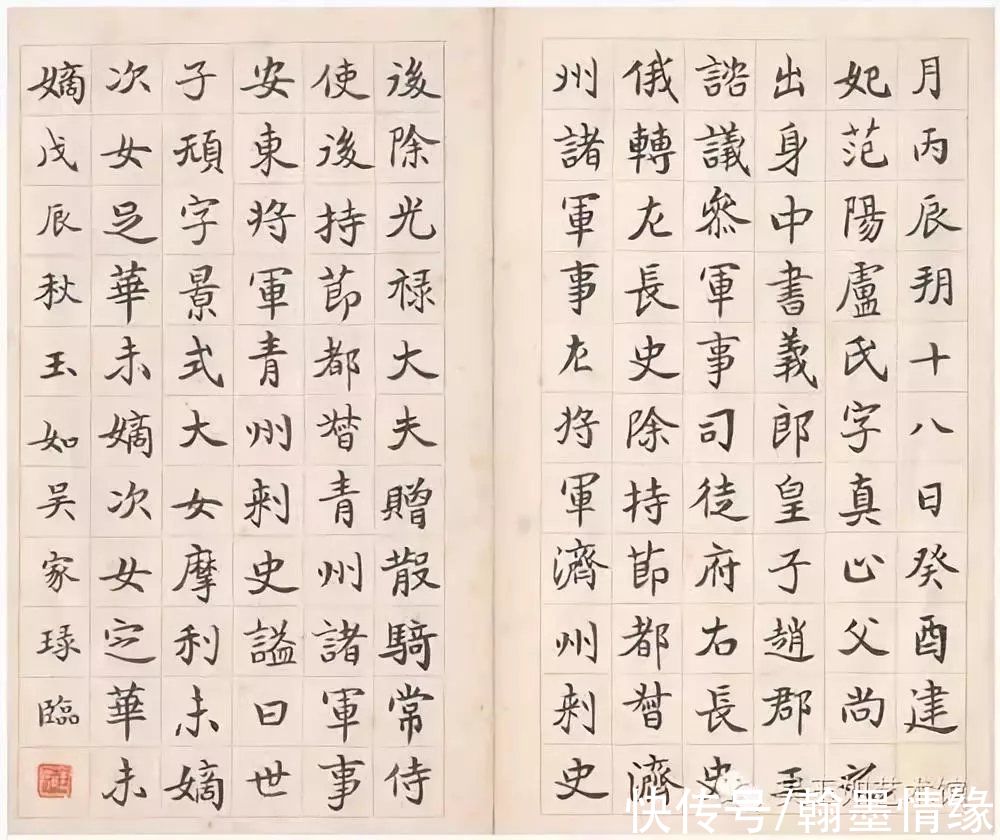 月丙辰朔十八日癸酉建
妃范陽盧氏字真心父尚之
出身中書義郎皇子趙郡王
諮議叅軍事司徒府右長史
俄轉左長史除持節都督濟
州諸軍事左將軍濟州刺史
後除光禄大夫贈散騎常侍
使後持節都督青州諸軍事
安東將軍青州刺史謚曰世
子頑字景式大女摩利未嫡
次女足華未嫡次女定華未
嫡戊辰秋玉如吴家琭臨
快传号/翰墨情缘